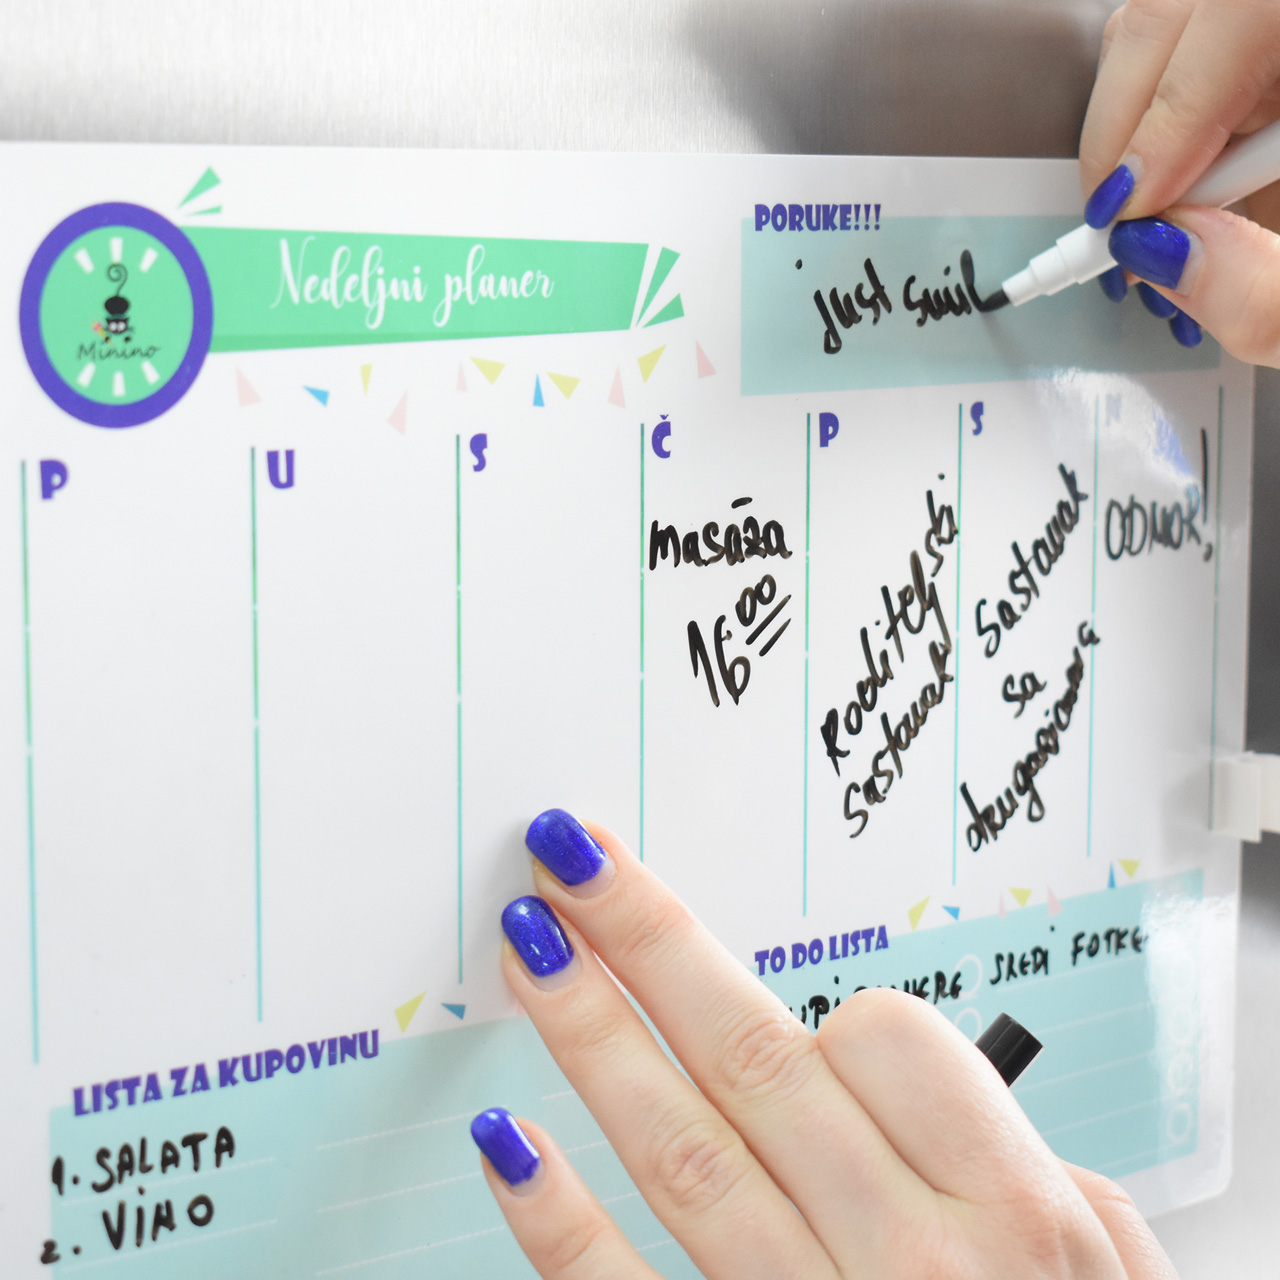 Nedeljni planer
Minino
PORUKE!!!
just smil
P
U
S
Č
P
S
N
masaža
16 00
Roditeljski
sastanak
Sastanak
sa
ODMOR!
LISTA ZA KUPOVINU
1. SALATA
2. VINO
TO DO LISTA
SREDI FOTKE